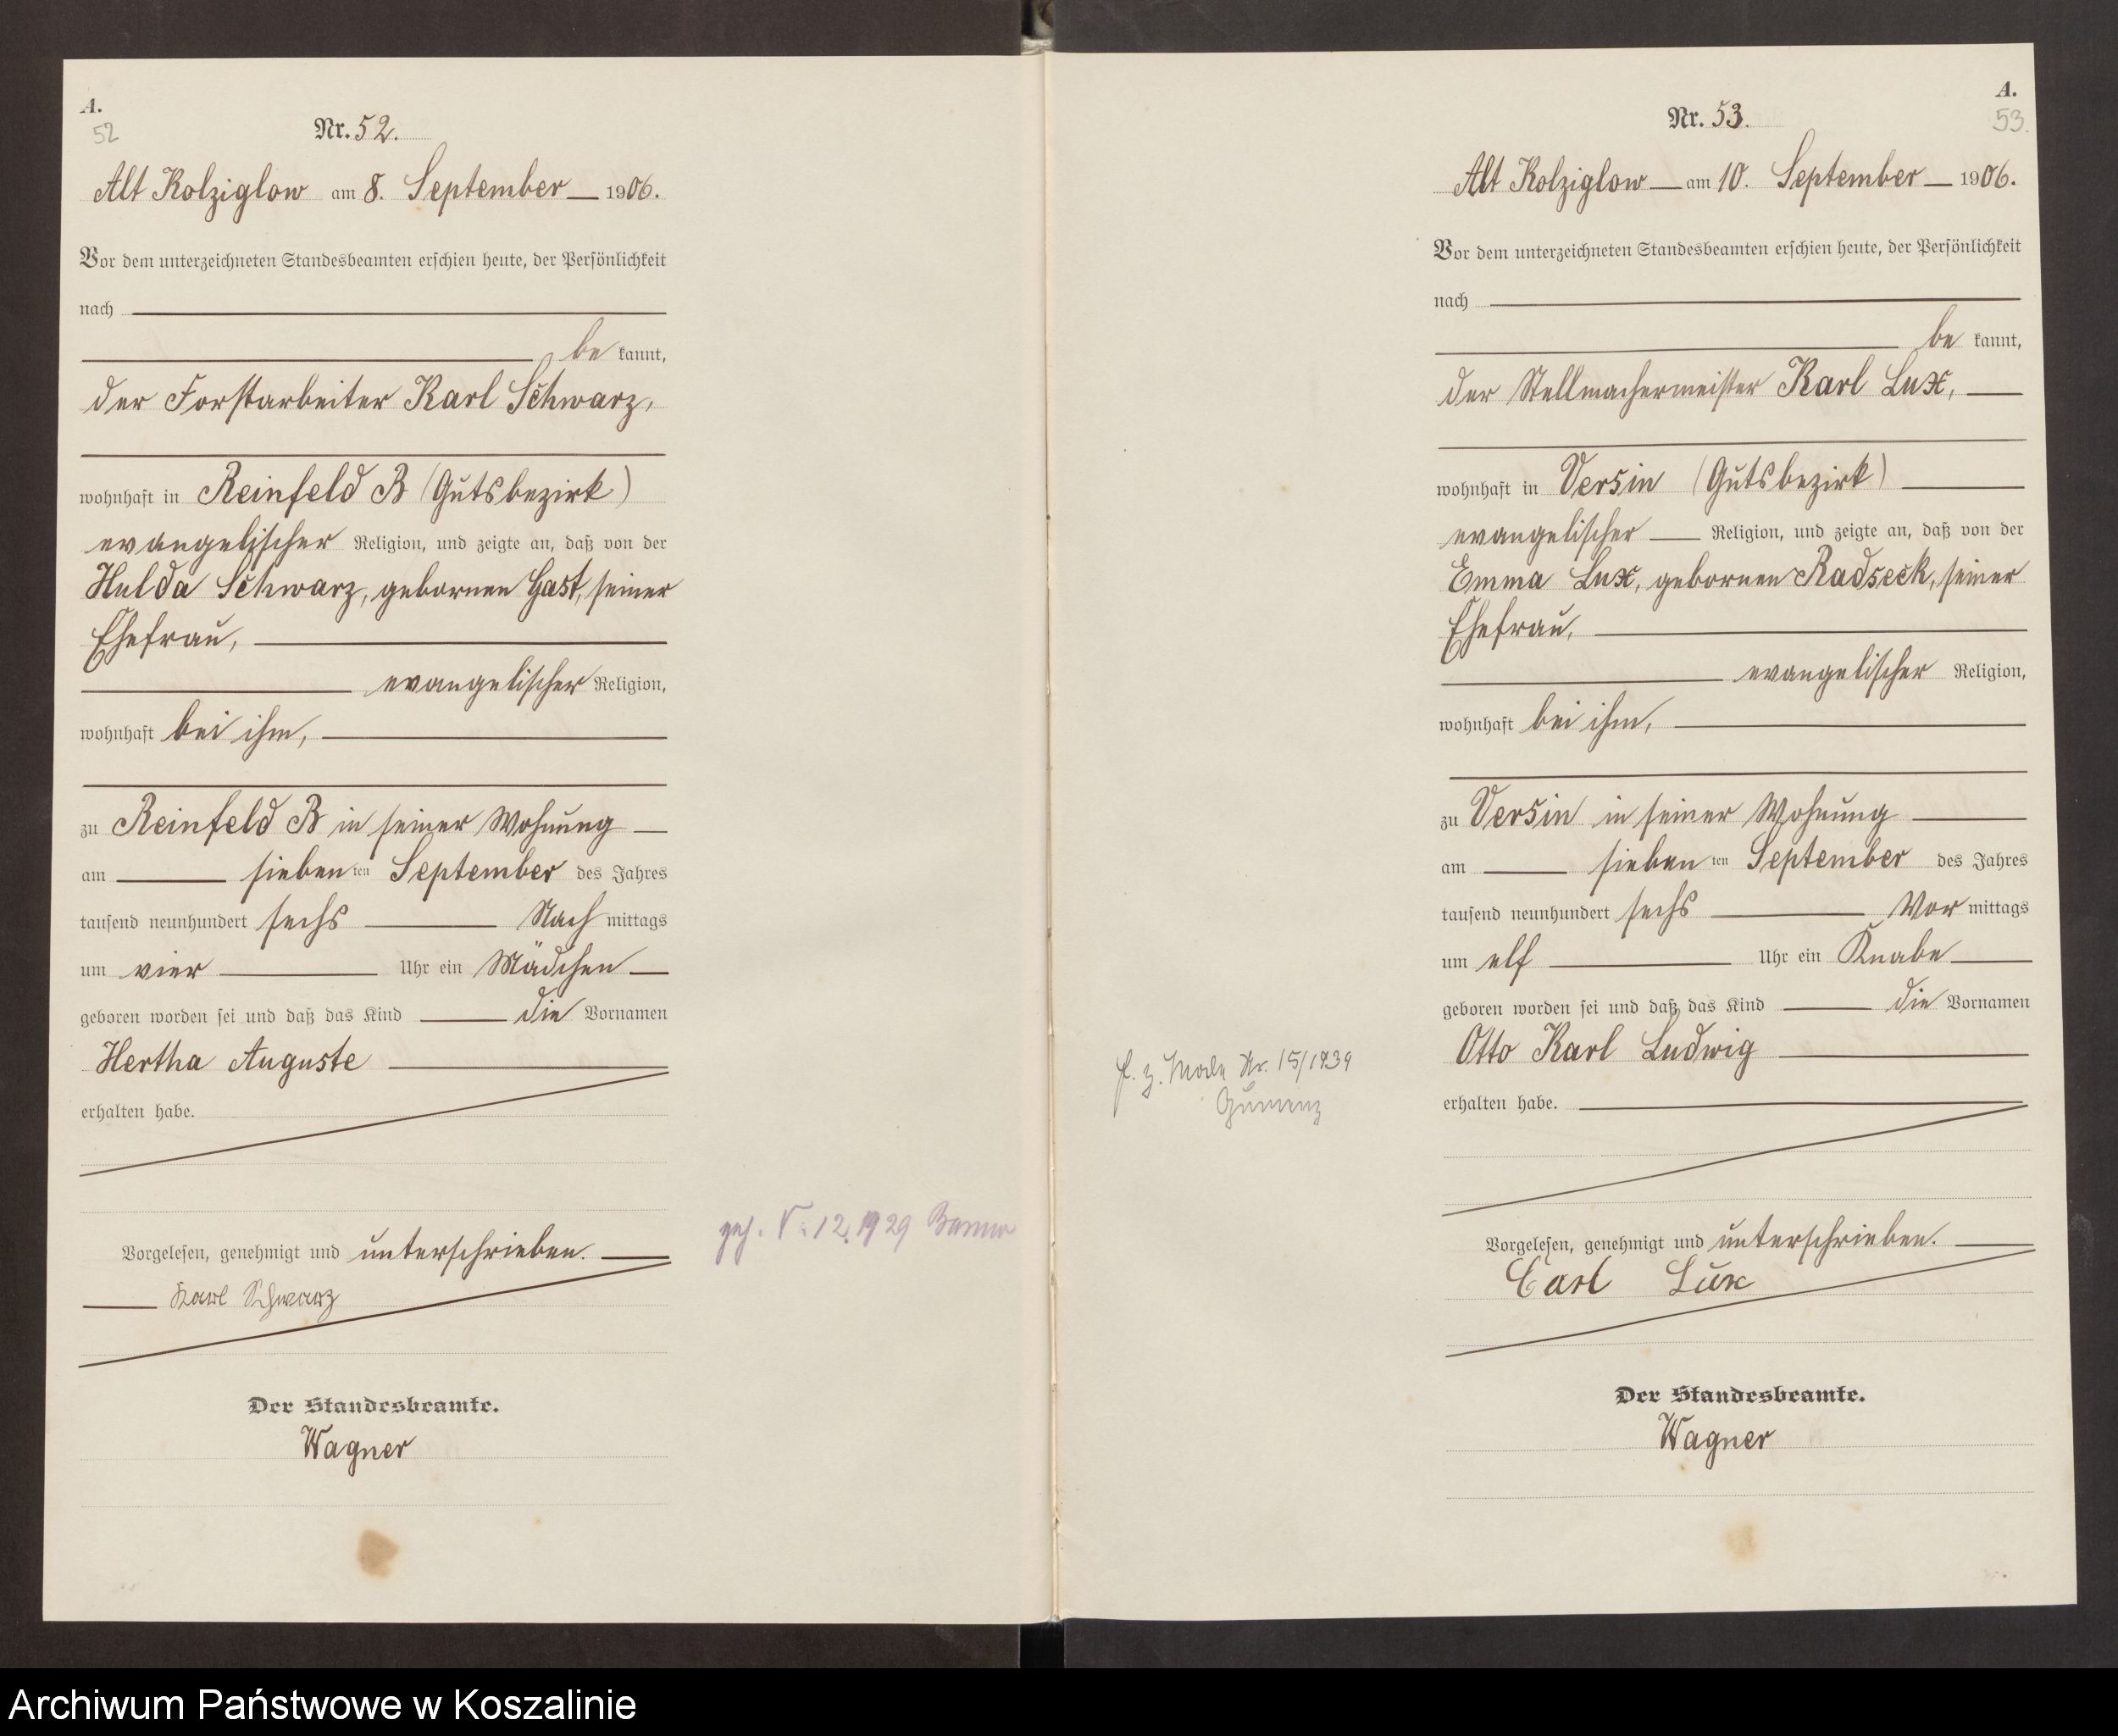 A.
52
Nr. 52.
Alt Kolziglow am 8. September 1906.
Vor dem unterzeichneten Standesbeamten erschien heute, der Persönlichkeit
nach
be kannt,
der Forstarbeiter Karl Schwarz,
wohnhaft in Reinfeld B (Gutsbezirk)
evangelischer Religion, und zeigte an, daß von der
Hulda Schwarz, gebornen Gast, seiner
Ehefrau,
evangelischer Religion,
wohnhaft bei ihm,
zu Reinfeld B in seiner Wohnung
am sieben ten September des Jahres
tausend neunhundert sechs Nach mittags
um vier Uhr ein Mädchen
geboren worden sei und daß das Kind die Vornamen
Hertha Auguste
erhalten habe.
Vorgelesen, genehmigt und unterschrieben.
Karl Schwarz
Der Standesbeamte.
Wagner
12. 1929
A.
53.
Nr. 53.
Alt Kolziglow am 10. September 1906.
Vor dem unterzeichneten Standesbeamten erschien heute, der Persönlichkeit
nach
be kannt,
der Stellmachermeister Karl Lux,
wohnhaft in Versin (Gutsbezirk)
evangelischer Religion, und zeigte an, daß von der
Emma Lux, gebornen Radseck, seiner
Ehefrau,
evangelischer Religion,
wohnhaft bei ihm,
zu Versin in seiner Wohnung
am sieben ten September des Jahres
tausend neunhundert sechs Vor mittags
um elf Uhr ein Knabe
geboren worden sei und daß das Kind die Vornamen
Otto Karl Ludwig
erhalten habe.
Vorgelesen, genehmigt und unterschrieben.
Carl Lux
Der Standesbeamte.
Wagner
Nr. 15/1939
Archiwum Państwowe w Koszalinie